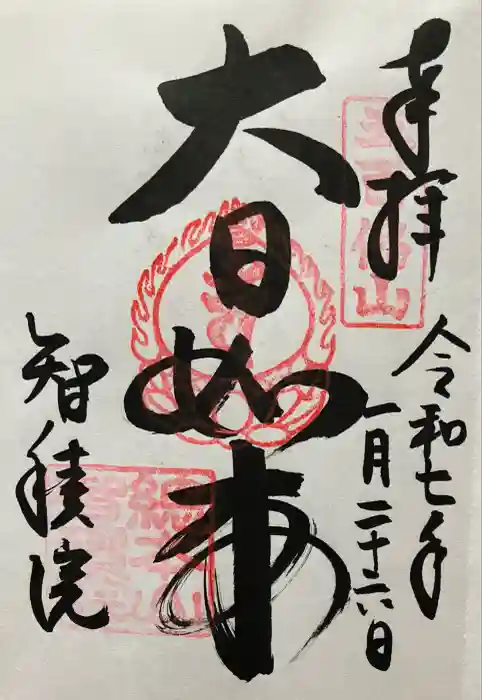 奉拝
令和七年
一月二十六日
大日如来
智積院
五百佛山